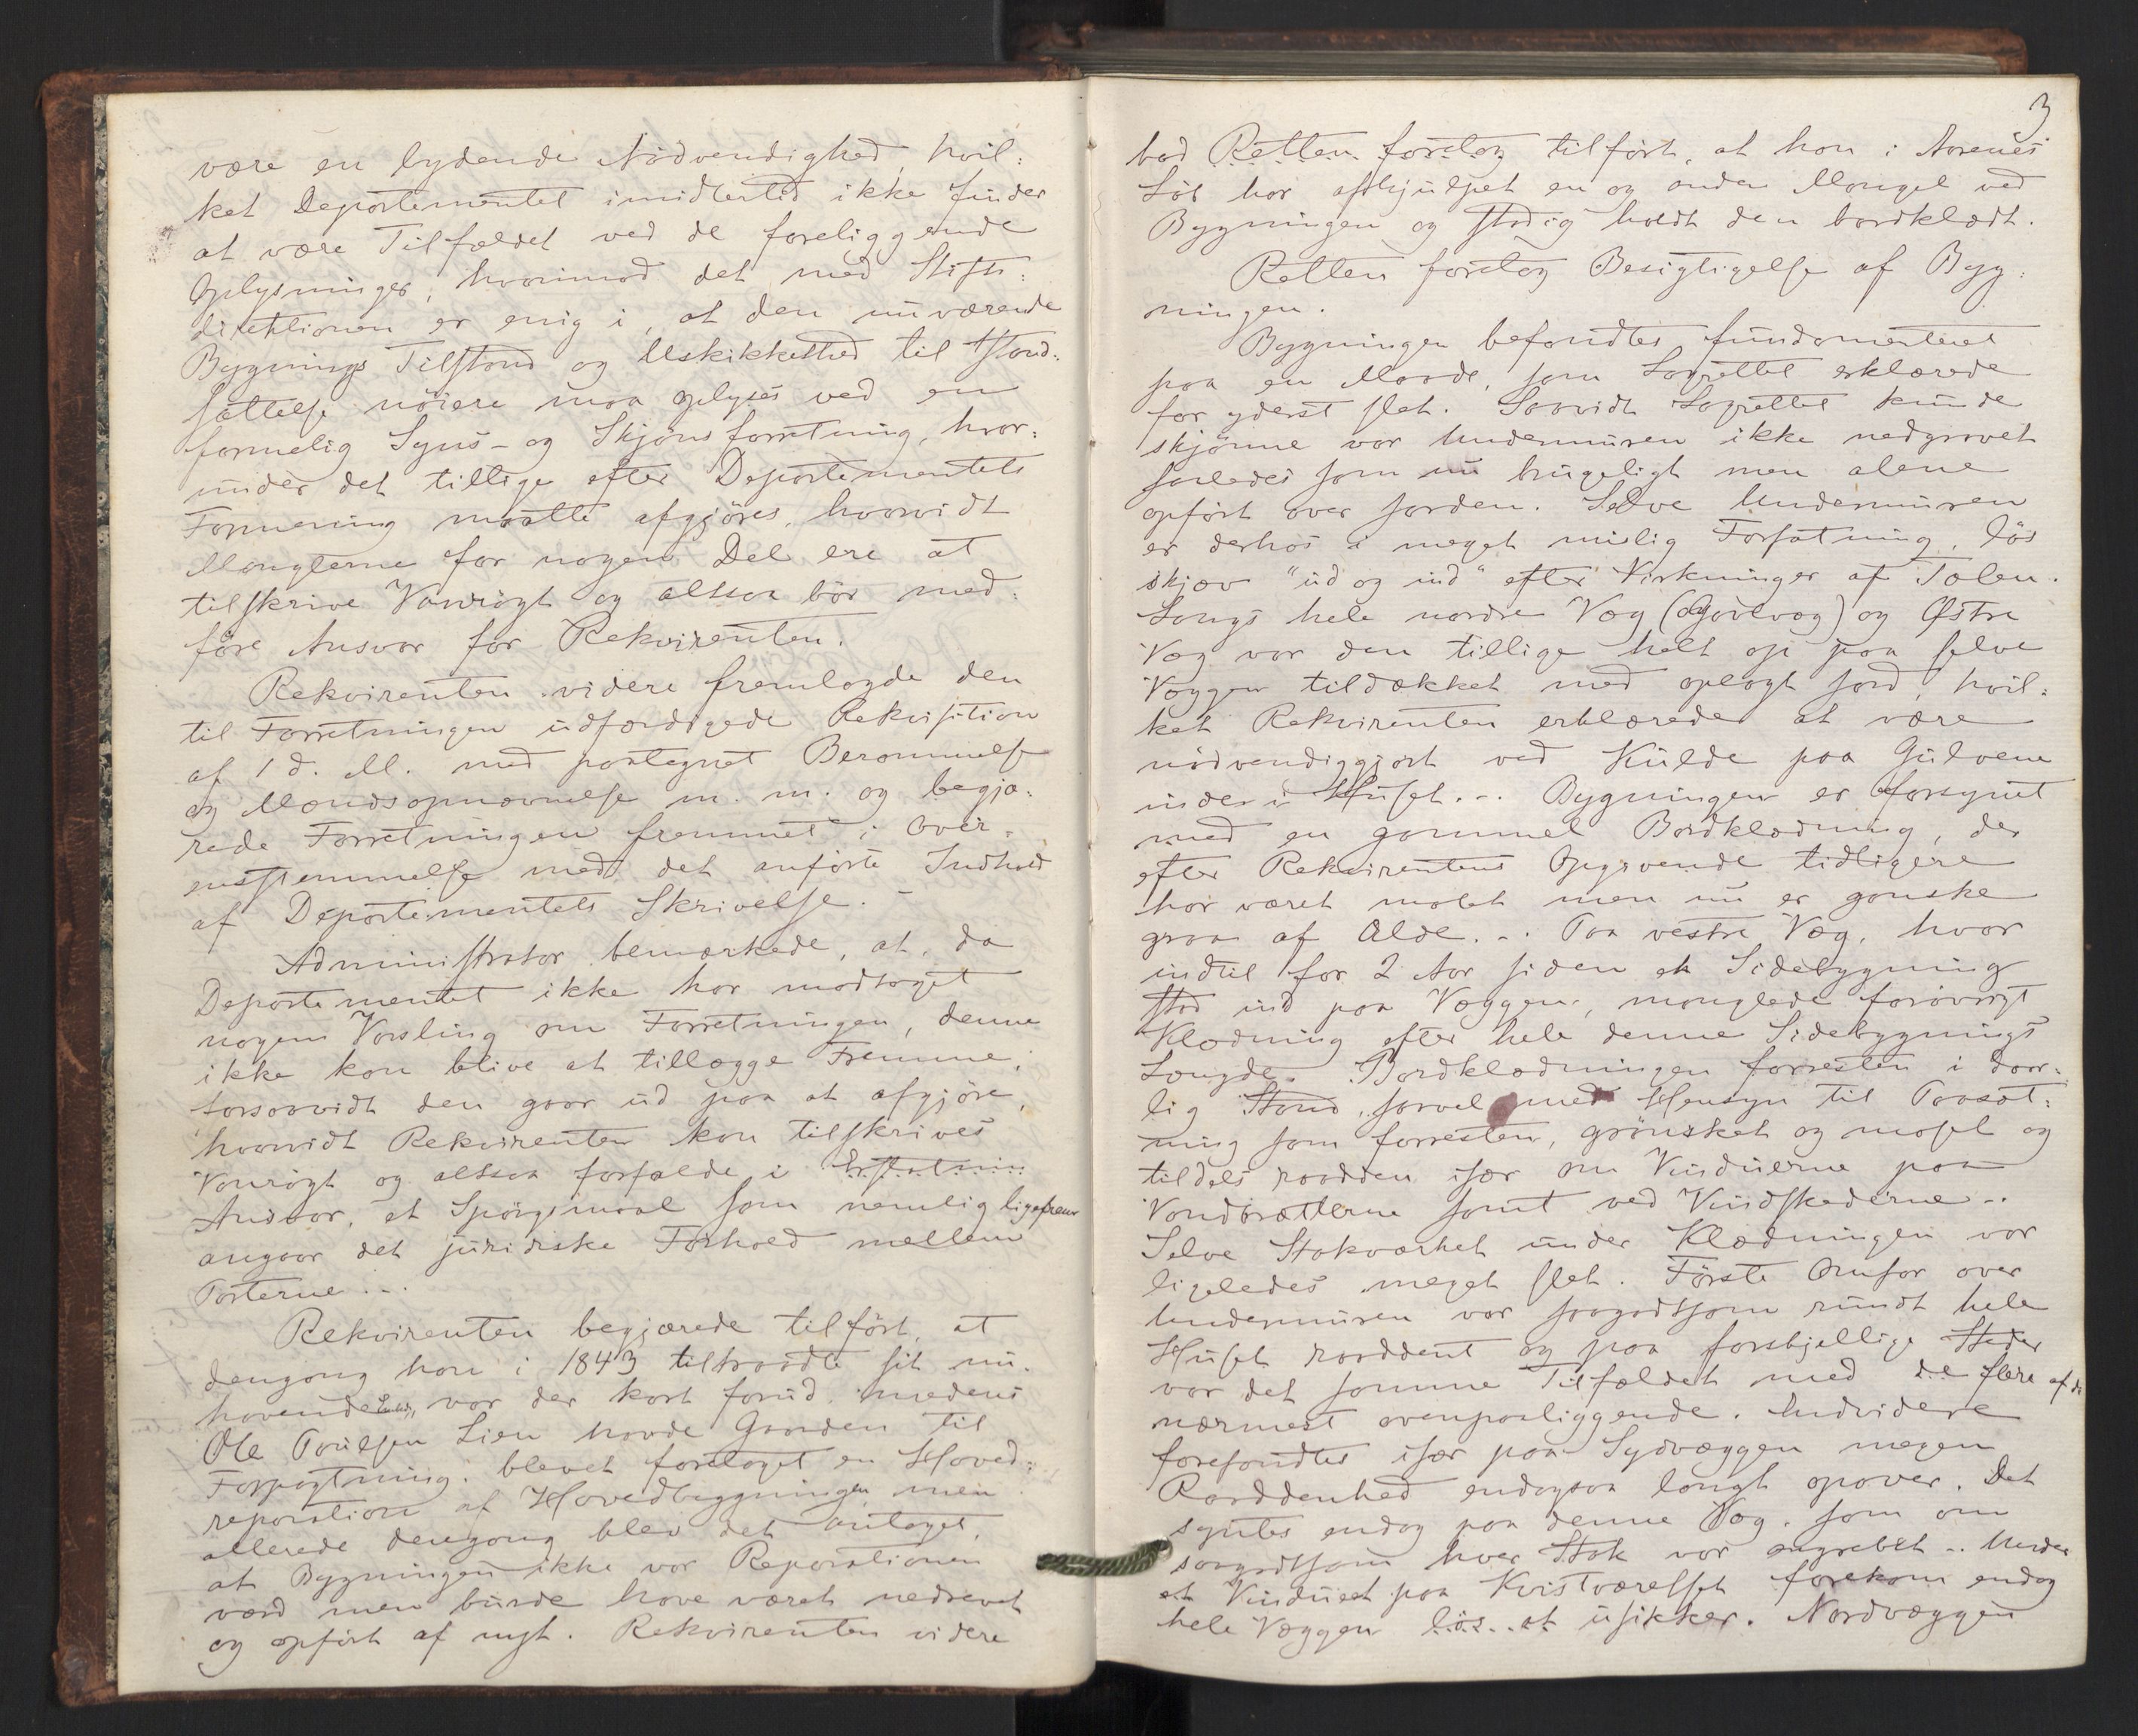 være en bydende Nödvendighed, hvil:
ket Departementet imidlertid ikke finder
at være Tilfældet ved de foreliggende
Oplysninger, hvorimod det med Stifts:
direktionen er enig i, at den nuværende
Bygnings Tilstand og Uskikkethed til Istand:
sættelse nöiere maa oplyses ved en
formelig Syns- og Skjönsforretning, hvor:
under det tillige efter Departementets
Formening maatte afgjöres, hvorvidt
Manglerne for nogen Del ere at
tilskrive Vanrögt og altsaa bör med:
före Ansvar for Rekvirenten.
Rekvirenten videre fremlagde den
til Forretningen udfærdigede Rekvisition
af 1 d. M. med paategnet Berammelse
og Mændsopnævnelse m. m. og begjæ:
rede Forretningen fremmet i Over:
ensstemmelse med det anförte Indhold
af Departementets Skrivelse. -
Administrator bemærkede, at, da
Departementet ikke har modtaget
nogen Varsling om Forretningen, denne
ikke kan blive at tillægge Fremme,
forsaavidt den gaar ud paa at afgjöre,
hvorvidt Rekvirenten kan tilskrives
Vanrögt og altsaa forfalde i Erstatnin
Ansvar, et Spörgsmaal som nemlig ligefrem
angaar det juridiske Forhold mellem
Parterne. -.
Rekvirenten begjærede tilfört, at
dengang han i 1843 tiltraadte sit nu:
havende Embede, var der kort forud, medens
Ole Poulsen Lien havde Gaarden til
Forpagtning, blevet foretaget en Hoved:
reparation af Hovedbyggningen, men
allerede dengang blev det antaget,
at Bygningen ikke var Reparationen
værd men burde have været nedrevet
og opfört af nyt. Rekvirenten videre
3
bad Retten foretog tilfört, at han i Aarenes
Löb har afhjulpet en og anden Mangel ved
Bygningen og stadig holdt den bordklædt.
Retten foretog Besigtigelse af Byg:
ningen.
Bygningen befandtes fundamenteret
paa en Maade, som Lagrettet erklærede
for yderst slet. Saavidt Lagrettet kunde
skjönne var Undermuren ikke nedgravet
saaledes som nu brugeligt men alene
opfört over Jorden. Selve Undermuren
er derhos i meget mislig Forfatning, lös
skjæv "ud og ind" efter Virkninger af Tælen.
Langs hele nordre Væg (Gavlvæg) og Østre
Væg var den tillige helt op paa selve
Væggen tildækket med oplagt Jord, hvil:
ket Rekvirenten erklærede at være
nödvendiggjort ved Kulde paa Gulvene
inde i Huset. -. Bygningen er forsynet
med en gammel Bordklædning, der
efter Rekvirentens Opgivende tidligere
har været malet men nu er ganske
graa af Ælde. -. Paa vestre Væg, hvor
indtil for 2 Aar siden en Sidebygning
stod ind paa Væggen, manglede forövrigt
Klædning efter hele denne Sidebygnings
Længde. Bordklædningen forresten i daar:
lig Stand, saavel med Hensyn til Paasæt:
ning som forresten, grönsket og moset og
tildels raadden især om Vinduerne paa
Vandbrætterne samt ved Vindskederne -.
Selve Stokværket under Klædningen var
ligeledes meget slet. Förste Omfar over
Undermuren var saagodtsom rundt hele
Huset raaddent og paa forskjellige Steder
var det samme Tilfældet med de flere af de
nærmest ovenpaaliggende. Endvidere
forefandtes især paa Sydvæggen megen
Raaddenhed endogsaa langt opover. Det
syntes endog paa denne Væg, som om
saagodtsom hver Stok var angrebet -. Under
et Vinduet paa Kvistværelset forekom endog
hele Væggen lös at usikker. Nordvæggen